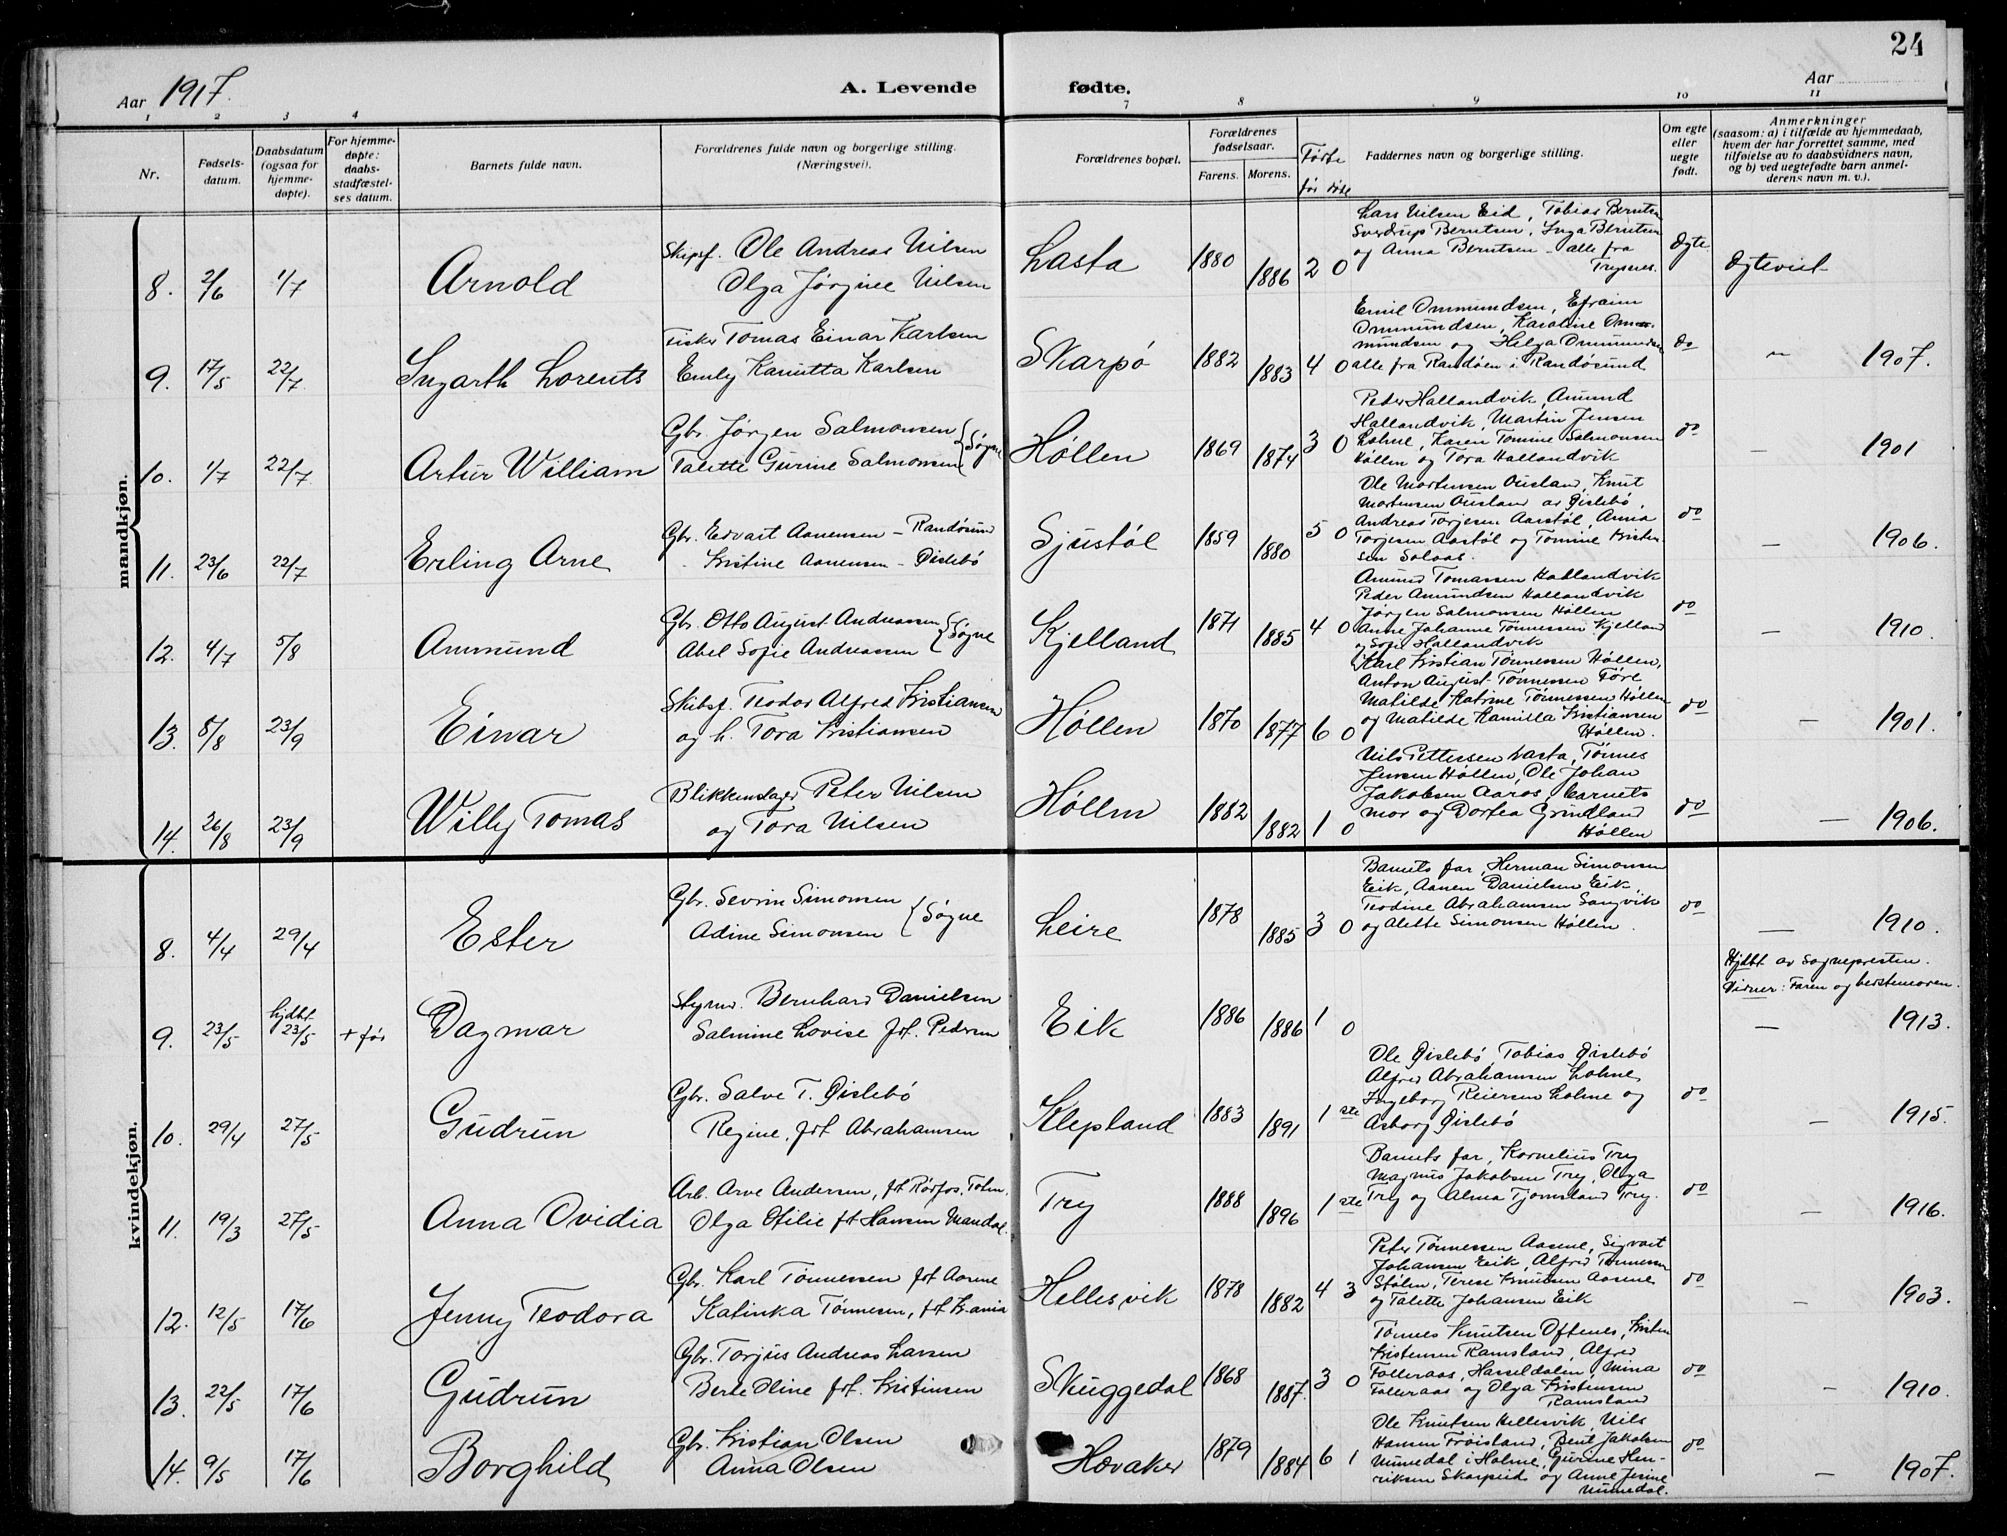 24
Aar 1917.
A. Levende fødte.
Aar
1 2 3 4 7 8 9 10 11
Nr.
Fødsels-
datum.
Daabsdatum
(ogsaa for
hjemme-
døpte).
For hjemme-
døpte:
daabs-
stadfæstel-
ses datum.
Barnets fulde navn.
Forældrenes fulde navn og borgerlige stilling.
(Næringsvei).
Forældrenes bopæl.
Forældrenes
fødselsaar.
Farens. Morens.
Fødte
før døde
Faddernes navn og borgerlige stilling.
Om egte
eller
uegte
født.
Anmerkninger
(saasom: a) i tilfælde av hjemmedaab,
hvem der har forrettet samme, med
tilføielse av to daabsvidners navn,
og b) ved uegtefødte barn anmel-
derens navn m. v.).
mandkjøn.
8. 2/6 1/7 Arnold
Skipsf. Ole Andreas Nilsen
Olga Jørgine Nilsen
Lasta 1880 1886 2 0
Lars Nilsen Eid, Tobias Berntsen
Sverdrup Berntsen, Inga Berntsen
og Anna Berntsen - alle fra
Trysnes.
Egte
Egteviet
9. 17/5 22/7 Ingarth Lorents
Fisker Tomas Einar Karlsen
Emly Kanutta Karlsen
Skarpø 1882 1883 4 0
Emil Ommundsen, Efraim
Ommundsen, Karoline Om-
mundsen og Helga Ommundsen
alle fra Randøen i Randøsund
do
— 1907.
10. 1/7 22/7 Artur William
Gbr. Jørgen Salmonsen
Talette Gurine Salmonsen } Søgne
Høllen 1869 1874 3 0
Peder Hallandvik, Amund
Hallandvik, Martin Jensen
Lohne, Karen Tomine Salmonsen
Høllen og Tora Hallandvik
do
— 1901
11. 23/6 22/7 Erling Arne
Gbr. Edvart Aanensen - Randøsund
Kristine Aanensen - Øislebø
Sjustøl 1859 1880 5 0
Ole Mortensen Ousland, Knut
Mortensen Ousland av Øislebø,
Andreas Torjesen Aarstøl, Anna
Torjesen Aastøl og Tomine Kristen-
sen Solaas.
do
— 1906.
12. 4/7 5/8 Ammund
Gbr. Otto August Andreassen
Abel Sofie Andreassen } Søgne
Kjelland 1871 1885 4 0
Amund Tomassen Hallandvik
Peder Amundsen Hallandvik
Jørgen Salmonsen Høllen
Anne Johanne Tønnessen Kjelland
og Sofie Hallandvik
do
— 1910.
13. 8/8 23/9 Einar
Skibsf. Teodor Alfred Kristiansen
og h. Tora Kristiansen
Høllen 1870 1877 6 0
Karl Kristian Tønnessen Høllen,
Anton August Tønnessen Føre
Matilde Katrine Tønnessen Høllen
og Matilde Kamilla Kristiansen
Høllen.
do
— 1901.
14. 26/8 23/9 Willy Tomas
Blikkenslager Peter Nilsen
og Tora Nilsen
Høllen 1882 1882 1 0
Nils Pettersen Lasta, Tønnes
Jensen Høllen, Ole Johan
Jakobsen Aaros, barnets
mor og Dortea Grindland
Høllen
do
— 1906.
kvindekjøn.
8. 4/4 29/4 Ester
Gbr. Sevrin Simonsen
Adine Simonsen } Søgne
Leire 1878 1885 3 0
Barnets far, Herman Simonsen
Eik, Aanen Danielsen Eik,
Teodine Abrahamsen Sangvik
og Alette Simonsen Høllen.
do
— 1910.
9. 23/5 hjdbt. 23/5 + før Dagmar
Styrm. Bernhard Danielsen
Salmine Lovise fdt. Pedersen
Eik 1886 1886 1 0
Hjdbt av sognepresten.
Vidner: Faren og bedstemoren.
— 1913.
10. 29/4 27/5 Gudrun
Gbr. Salve T. Øislebø
Regine, fdt Abrahamsen
Klepland 1883 1891 1ste
Ole Øislebø, Tobias Øislebø
Alfred Abrahamsen Lohne,
Ingeborg Reiersen Lohne og
Asborg Øislebø
do
— 1915.
11. 19/3 27/5 Anna Ovidia
Arb. Arve Andersen, ft Rødfos, Toten.
Olga Otilie ft Hansen Mandal.
Try 1888 1896 1ste
Barnets far, Kornelius Try
Magnus Jakobsen Try, Olga
Try og Alma Tjomsland Try.
do
— 1916.
12. 12/5 17/6 Jenny Teodora
Gbr. Karl Tønnessen fdt Aasene
Katinka Tønnesen, fdt Kr.ania
Hellesvik 1878 1882 4 3
Peter Tønnessen Aasene, Sigvart
Johansen Eik, Alfred Tønnessen
Stølen, Terese Knutsen Aasene
og Talette Johansen Eik
do
— 1903.
13. 22/5 17/6 Gudrun
Gbr. Torjus Andreas Larsen
Berte Oline fdt. Kristensen
Skuggedal 1868 1887. 3 0
Tønnes Knutsen Oftenes, Kristen
Kristensen Ramsland, Alfred
Folleraas, Hasseldalen, Mina
Folleraas og Olga Kristensen
Ramsland
do
— 1910.
14. 9/5 17/6 Borghild
Gbr. Kristian Olsen
Anna Olsen
Hovaker 1879 1884 6 1
Ole Knutsen Hellesvik, Nils
Hansen Frøisland, Bent Jakobsen
Numedal i Holme, Gurine Hen-
riksen Skarpeid og Anne Jesine
Numedal.
do
— 1907.